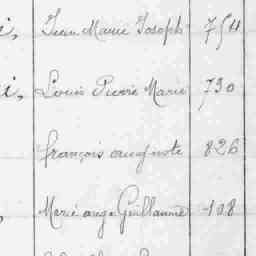 i, Jean Marie Joseph 754
i, Louis Pierre Marie 730
françois 826
, Marie ange Guillaume 108